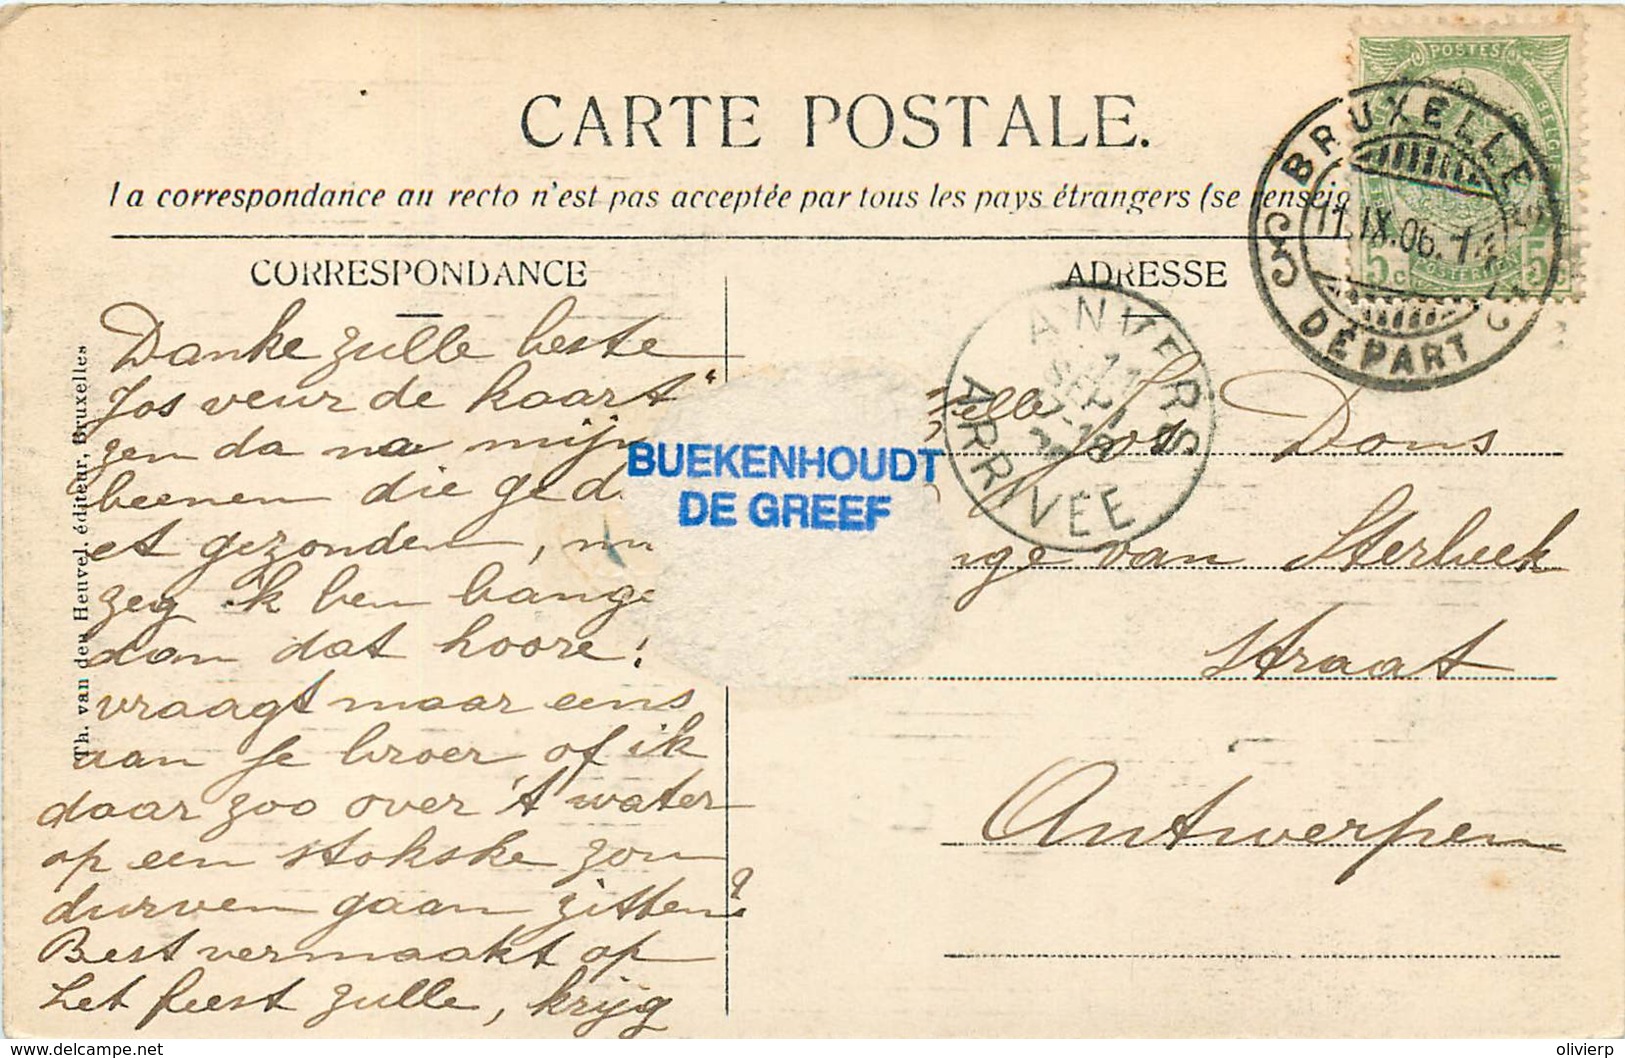 CARTE POSTALE.
La correspondance au recto n'est pas acceptée par tous les pays étrangers (se renseig
POSTES
BELGIQUE
5c
5c
BRUXELLES
11.IX.06.14
DÉPART
CORRESPONDANCE
ADRESSE
ANVERS
ARRIVÉE
Danke zulle beste
Jos veur de kaart
zen da na mijn
beenen die ged
et gezonden,
zeg ik ben bange
dan dat hoore!
vraagt maar eens
aan je broer of ik
daar zoo over 't water
op een stokske zou
durven gaan zitten?
Best vermaakt op
het feest zulle, krijg
BUEKENHOUDT
DE GREEF
elle Jos Dons
nge van Sterbeek
Straat
Antwerpen
Th. van den Heuvel, éditeur, Bruxelles
delcampe.net
olivierp